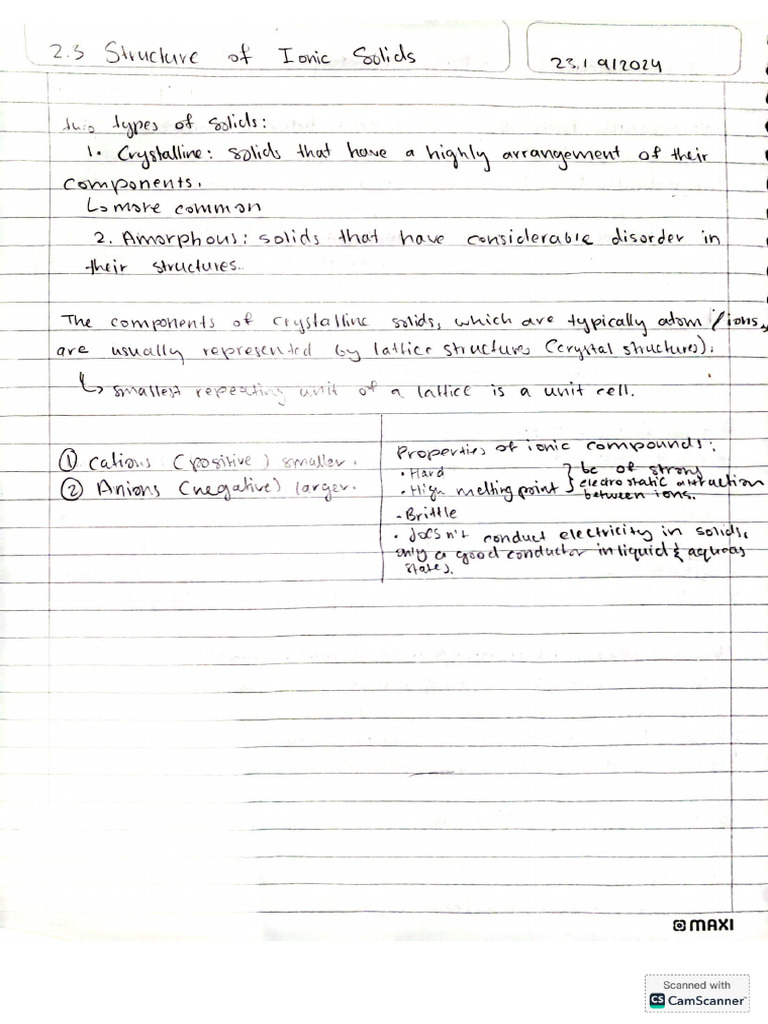 2.3 Structure of Ionic Solids
23.1 9/2024
two types of solids:
1. Crystalline: solids that have a highly arrangement of their
components.
↳ more common
2. Amorphous: solids that have considerable disorder in
their structures.
The components of crystalline solids, which are typically atom / ions,
are usually represented by lattice structures (crystal structures).
↳ smallest repeating unit of a lattice is a unit cell.
① Cations (positive) smaller.
② Anions (negative) larger.
Properties of ionic compounds:
• Hard
• High melting point } bc of strong
electrostatic attraction
between ions.
- Brittle
• Doesn't conduct electricity in solids,
only a good conductor in liquid & aqueous
states.
MAXI
Scanned with
CS CamScanner